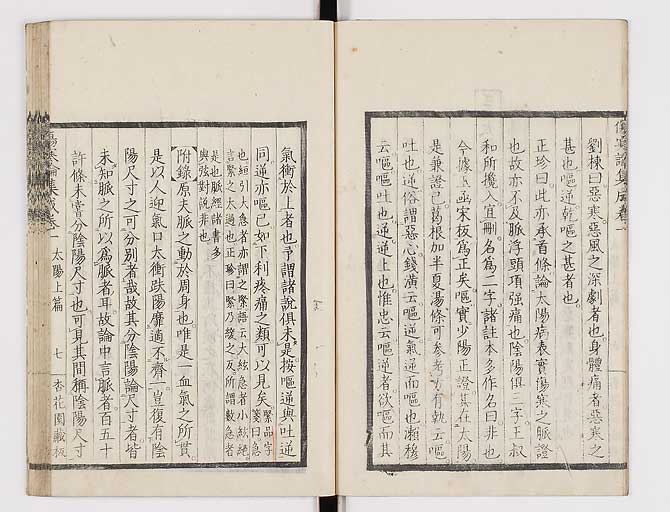 傷寒論集成卷一
劉棟曰惡寒惡風之深劇者也身體痛者惡寒之
甚也嘔逆乾嘔之甚者也
正珍曰此亦承首條論太陽病表實傷寒之脈證
也故亦不及脈浮頭項強痛也陰陽俱三字王叔
和所攙入宜刪名爲二字諸註本多作名曰非也
今據玉函宋板爲正矣嘔實少陽正證其在太陽
是兼證已葛根加半夏湯條可參考方有執云嘔
吐也逆俗謂惡心錢潢云嘔逆氣逆而嘔也瀨穆
云嘔嘔吐也逆逆上也惟忠云嘔逆者欲嘔而其
氣衝於上者也予謂諸說俱未是按嘔逆與吐逆
同逆亦嘔已如下利疼痛之類可以見矣 箋曰急
緊品字
也絙引大急者亦謂之緊語云大絃急者小絃絶
言緊之太過也正珍曰緊乃緩之反所謂數急者
是也脈經諸書多
與弦對說非也
附錄原夫脈之動於周身也唯是一血氣之所貫
是以人迎氣口太衝趺陽靡適不齊一豈復有陰
陽尺寸之可分別者哉故其分陰陽論尺寸者皆
未知脈之所以爲脈者耳故論中言脈者百五十
許條未嘗分陰陽尺寸也可見其間稱陰陽尺寸
傷寒論集成卷一 太陽上篇 七 杏花園藏板